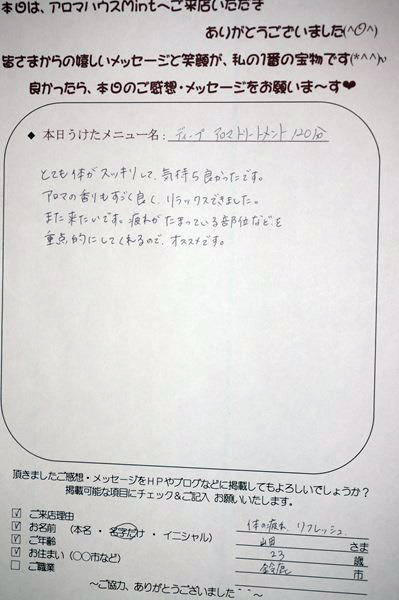 本日は、アロマハウスMintへご来店いただき
ありがとうございました(^O^)
皆さまからの嬉しいメッセージと笑顔が、私の1番の宝物です(*^^)v
良かったら、本日のご感想・メッセージをお願いま〜す❤
◆ 本日うけたメニュー名: ディープ アロマトリートメント 120分
とても体がスッキリして、気持ち良かったです。
アロマの香りもすごく良く、リラックスできました。
また来たいです。疲れがたまっている部位などを
重点的にしてくれるので、オススメです。
頂きましたご感想・メッセージをHPやブログなどに掲載してもよろしいでしょうか?
掲載可能な項目にチェック&ご記入 お願いいたします。
☑ ご来店理由 体の疲れ、リフレッシュ
☑ お名前 (本名・名字だけ・イニシャル) 山田 さま
☑ ご年齢 23 歳
☑ お住まい (○○市など) 鈴鹿 市
□ ご職業
〜ご協力、ありがとうございました^ ^〜